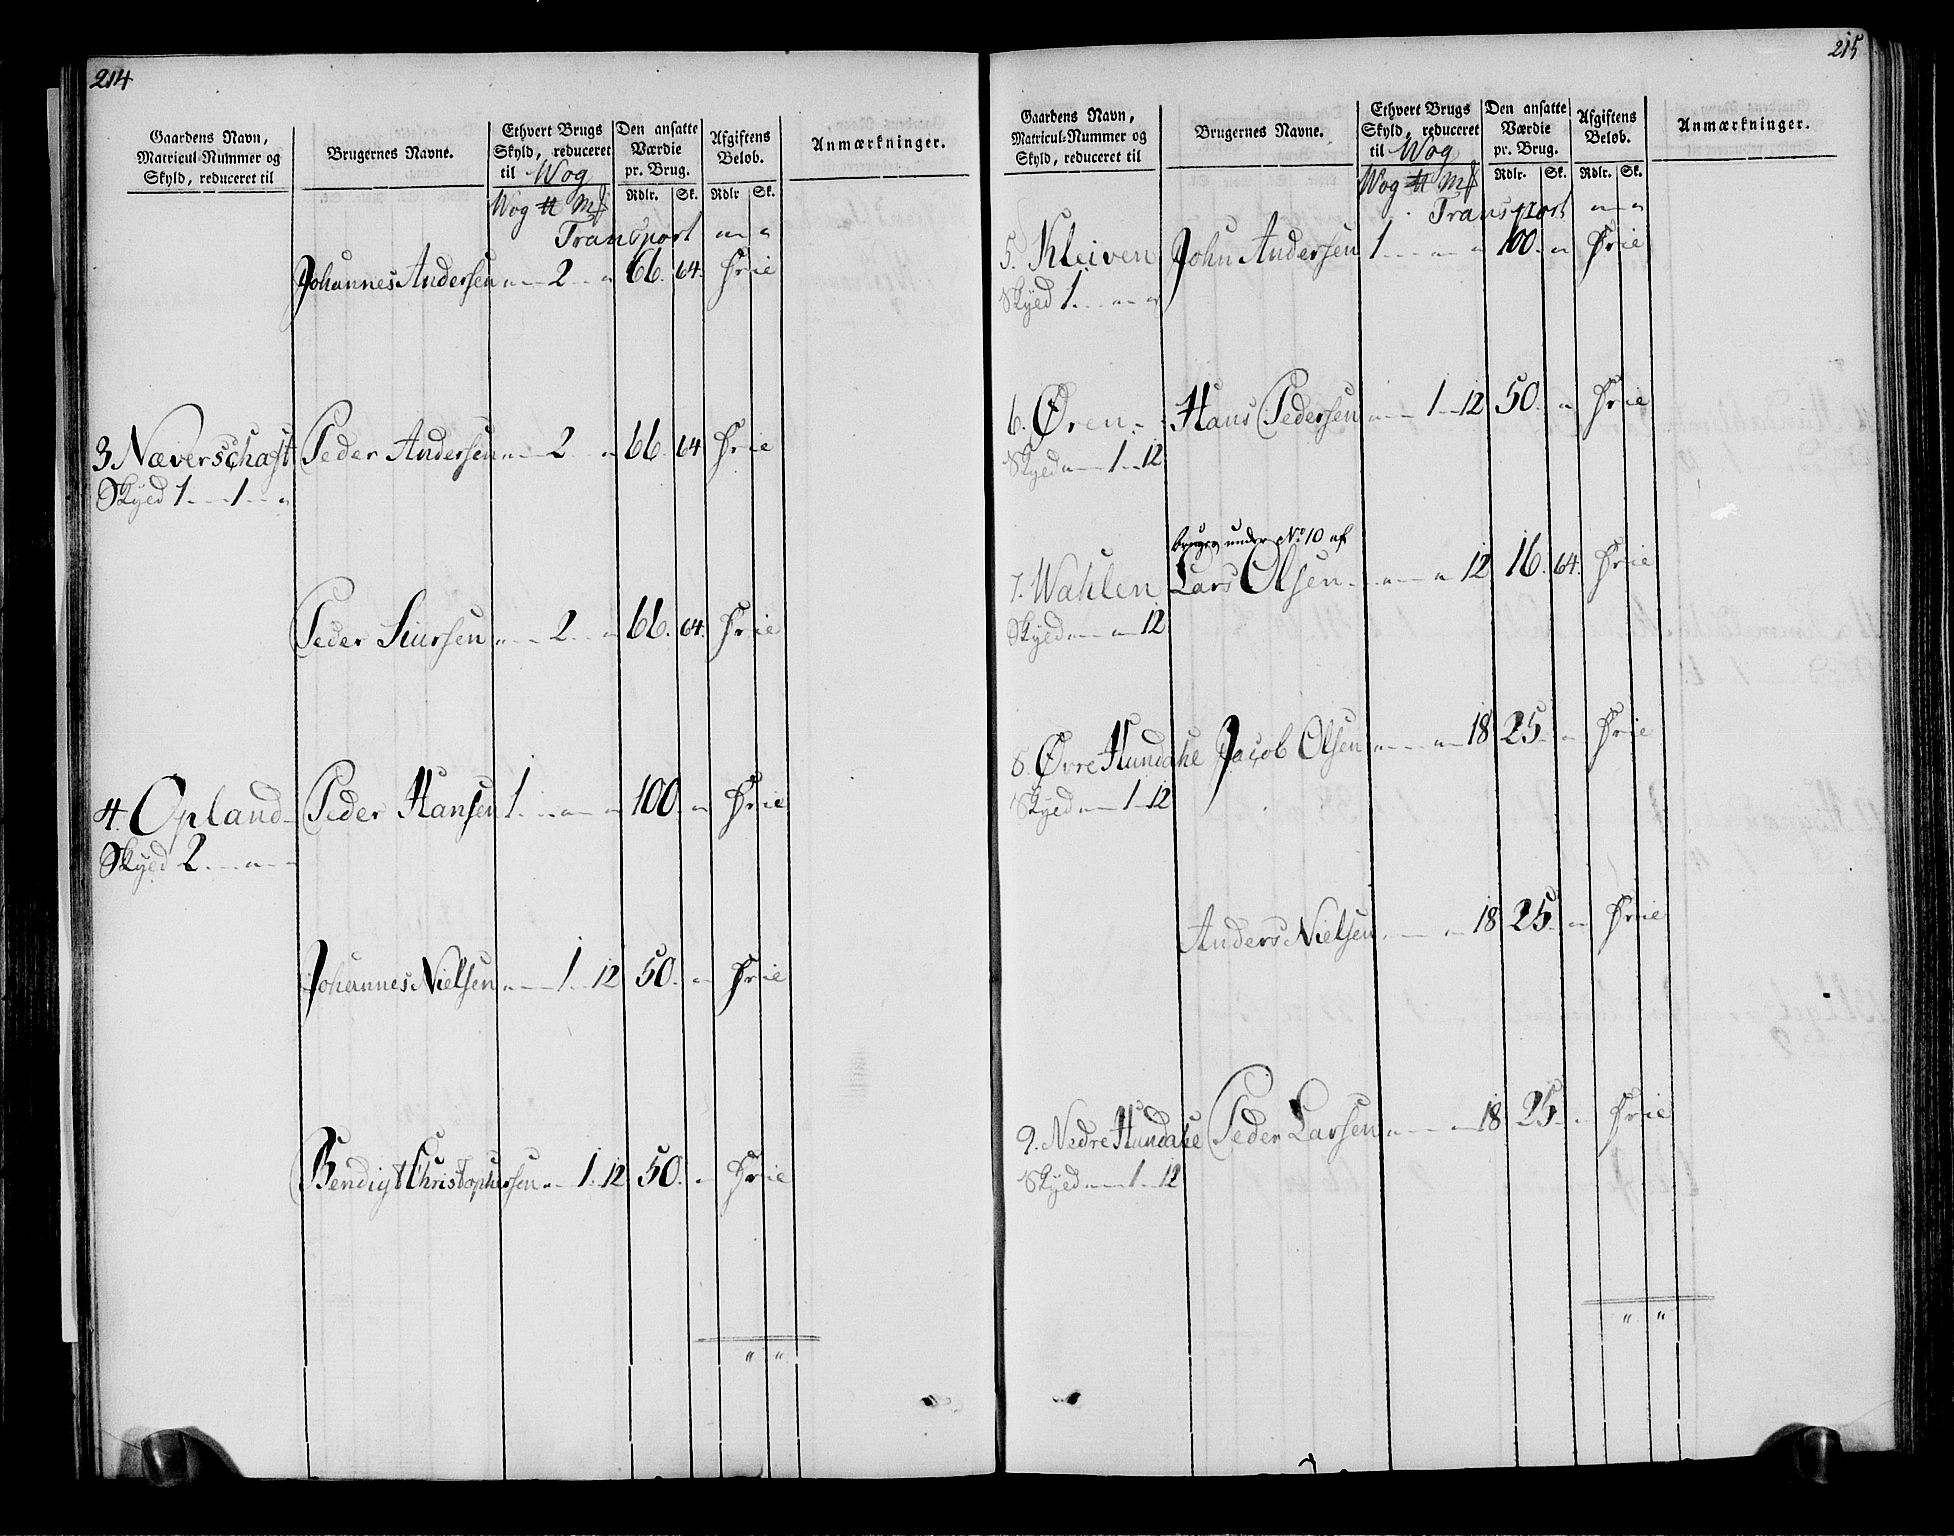 214
Gaardens Navn,
Matricul-Nummer og
Skyld, reduceret til
Brugernes Navne.
Ethvert Brugs
Skyld, reduceret
til Wog
Den ansatte
Værdie
pr. Brug.
Afgiftens
Beløb.
Anmærkninger.
Wog ℔ Mk
Rdlr. Sk. Rdlr. Sk.
Transport " "
Johannes Andersen " 2 " 66. 64. Frie
3. Næverschaft Peder Andersen " 2 " 66. 64 Frie
Skyld 1 1 "
Peder Siursen " 2 " 66. 64. Frie
4. Opland Peder Hansen 1 " " 100. " Frie
Skyld 2 " "
Johannes Nielsen " 1 12 50. " Frie
Bendigt Christophersen " 1 12 50. " Frie
" "
215
Gaardens Navn,
Matricul-Nummer og
Skyld, reduceret til
Brugernes Navne.
Ethvert Brugs
Skyld, reduceret
til Wog
Den ansatte
Værdie
pr. Brug.
Afgiftens
Beløb.
Anmærkninger.
Wog ℔ Mk
Rdlr. Sk. Rdlr. Sk.
Transport " "
5. Kleiven John Andersen 1 " " 100. " Frie
Skyld 1 " "
6. Øren Hans Pedersen " 1 12 50. " Frie
Skyld " 1 12
bruges under No 10 af
7. Wahlen Lars Olsen " " 12 16. 64. Frie
Skyld " " 12
8. Øvre Hundahl Jacob Olsen " " 18 25 " Frie
Skyld " 1 12
Anders Nielsen " " 18 25. " Frie
9. Nedre Hundahl Peder Larsen " " 18 25. " Frie
Skyld " 1 12
" "